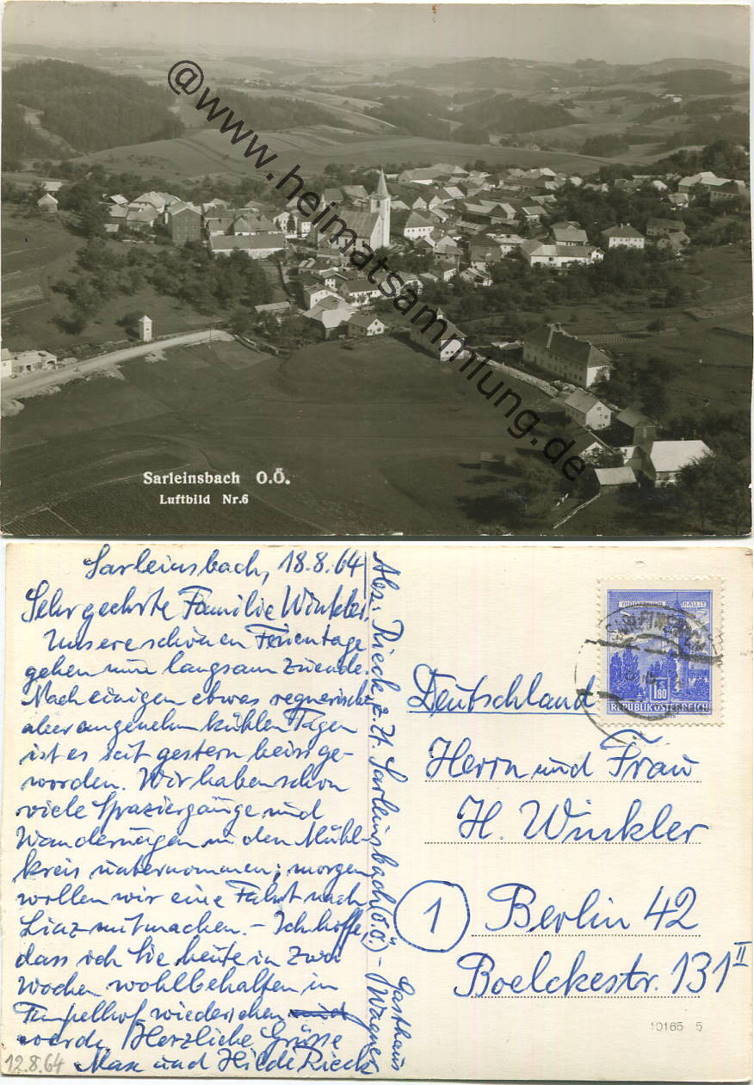 @www.heimatsammlung.de
Sarleinsbach O.Ö.
Luftbild Nr.6
Sarleinsbach, 18.8.64
Sehr geehrte Familie Winkler.
Unsere schönen Ferientage
gehen nun langsam zuende.
Nach einigen etwas regnerisch
aber angenehm kühlen Tagen
ist es seit gestern heiss ge-
worden. Wir haben schon
viele Spaziergänge und
Wanderungen in den Mühl-
kreis unternommen; morgen
wollen wir eine Fahrt nach
Linz mitmachen. - Ich hoffe,
dass ich Sie heute in zwei
Wochen wohlbehalten in
Tempelhof wiedersehen
werde. Herzliche Grüsse
Max und Hilde Rieck
12.8.64
Abs: Rieck, z. Zt. Sarleinsbach O.Ö. - Gasthaus
Wagner
REPUBLIK ÖSTERREICH
1.80
Deutschland
Herrn und Frau
H. Winkler
1
Berlin 42
Boelckestr. 131 II
10165 5